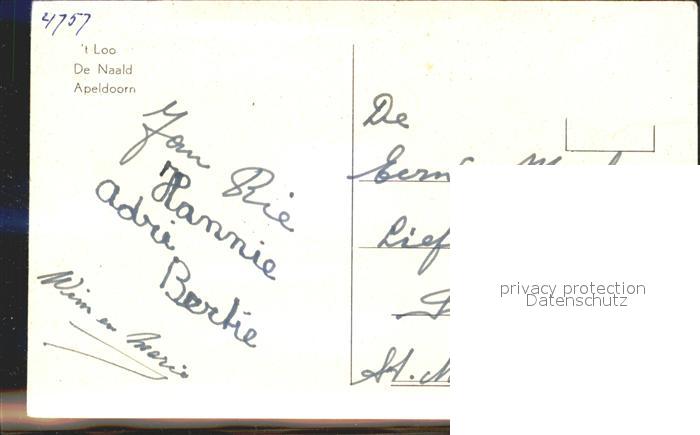 4757
't Loo
De Naald
Apeldoorn
Jan Rie
Hannie
Adrie
Bertie
Wim en Marie
De
Lief
St. M
privacy protection
Datenschutz